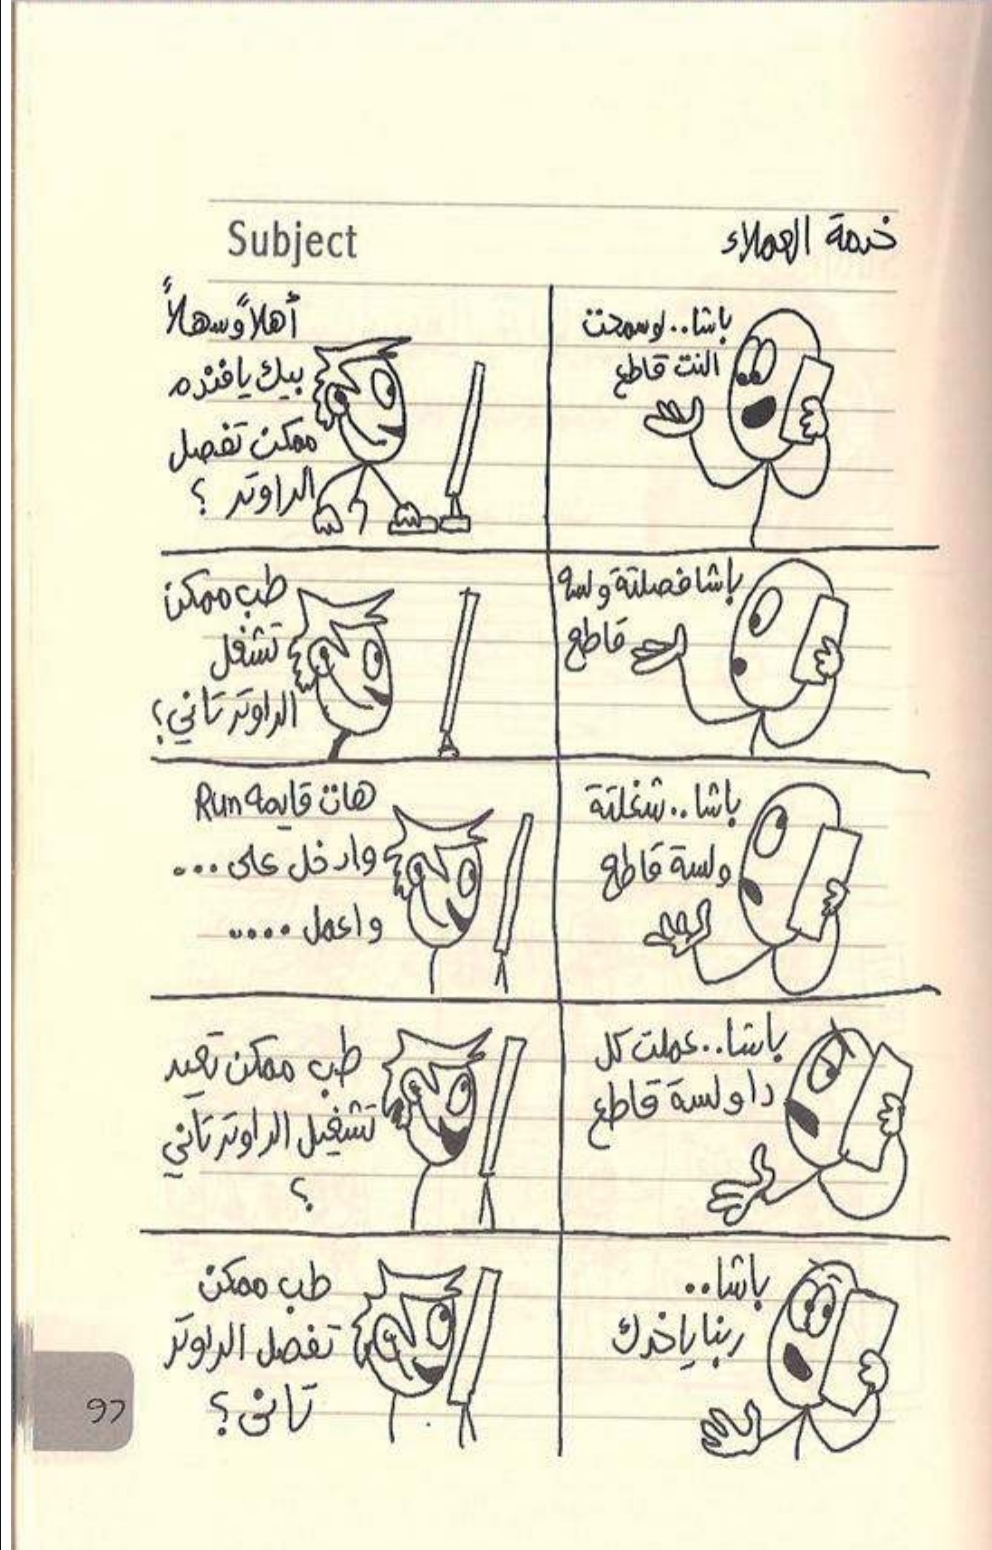 خدمة العملاء
Subject
باشا.. لوسمحت
النت قاطع
أهلاً وسهلاً
بيك يا فندم
ممكن تفصل
الراوتر ؟
باشا فصلتة ولسه
قاطع
طب ممكن
تشغل
الراوتر تاني؟
باشا.. شغلتة
ولسة قاطع
هات قايمه Run
وادخل على ...
واعمل ....
باشا.. عملت كل
دا ولسة قاطع
طب ممكن تعيد
تشغيل الراوتر تاني
؟
باشا..
ربنا ياخدك
طب ممكن
تفصل الراوتر
تانى ؟